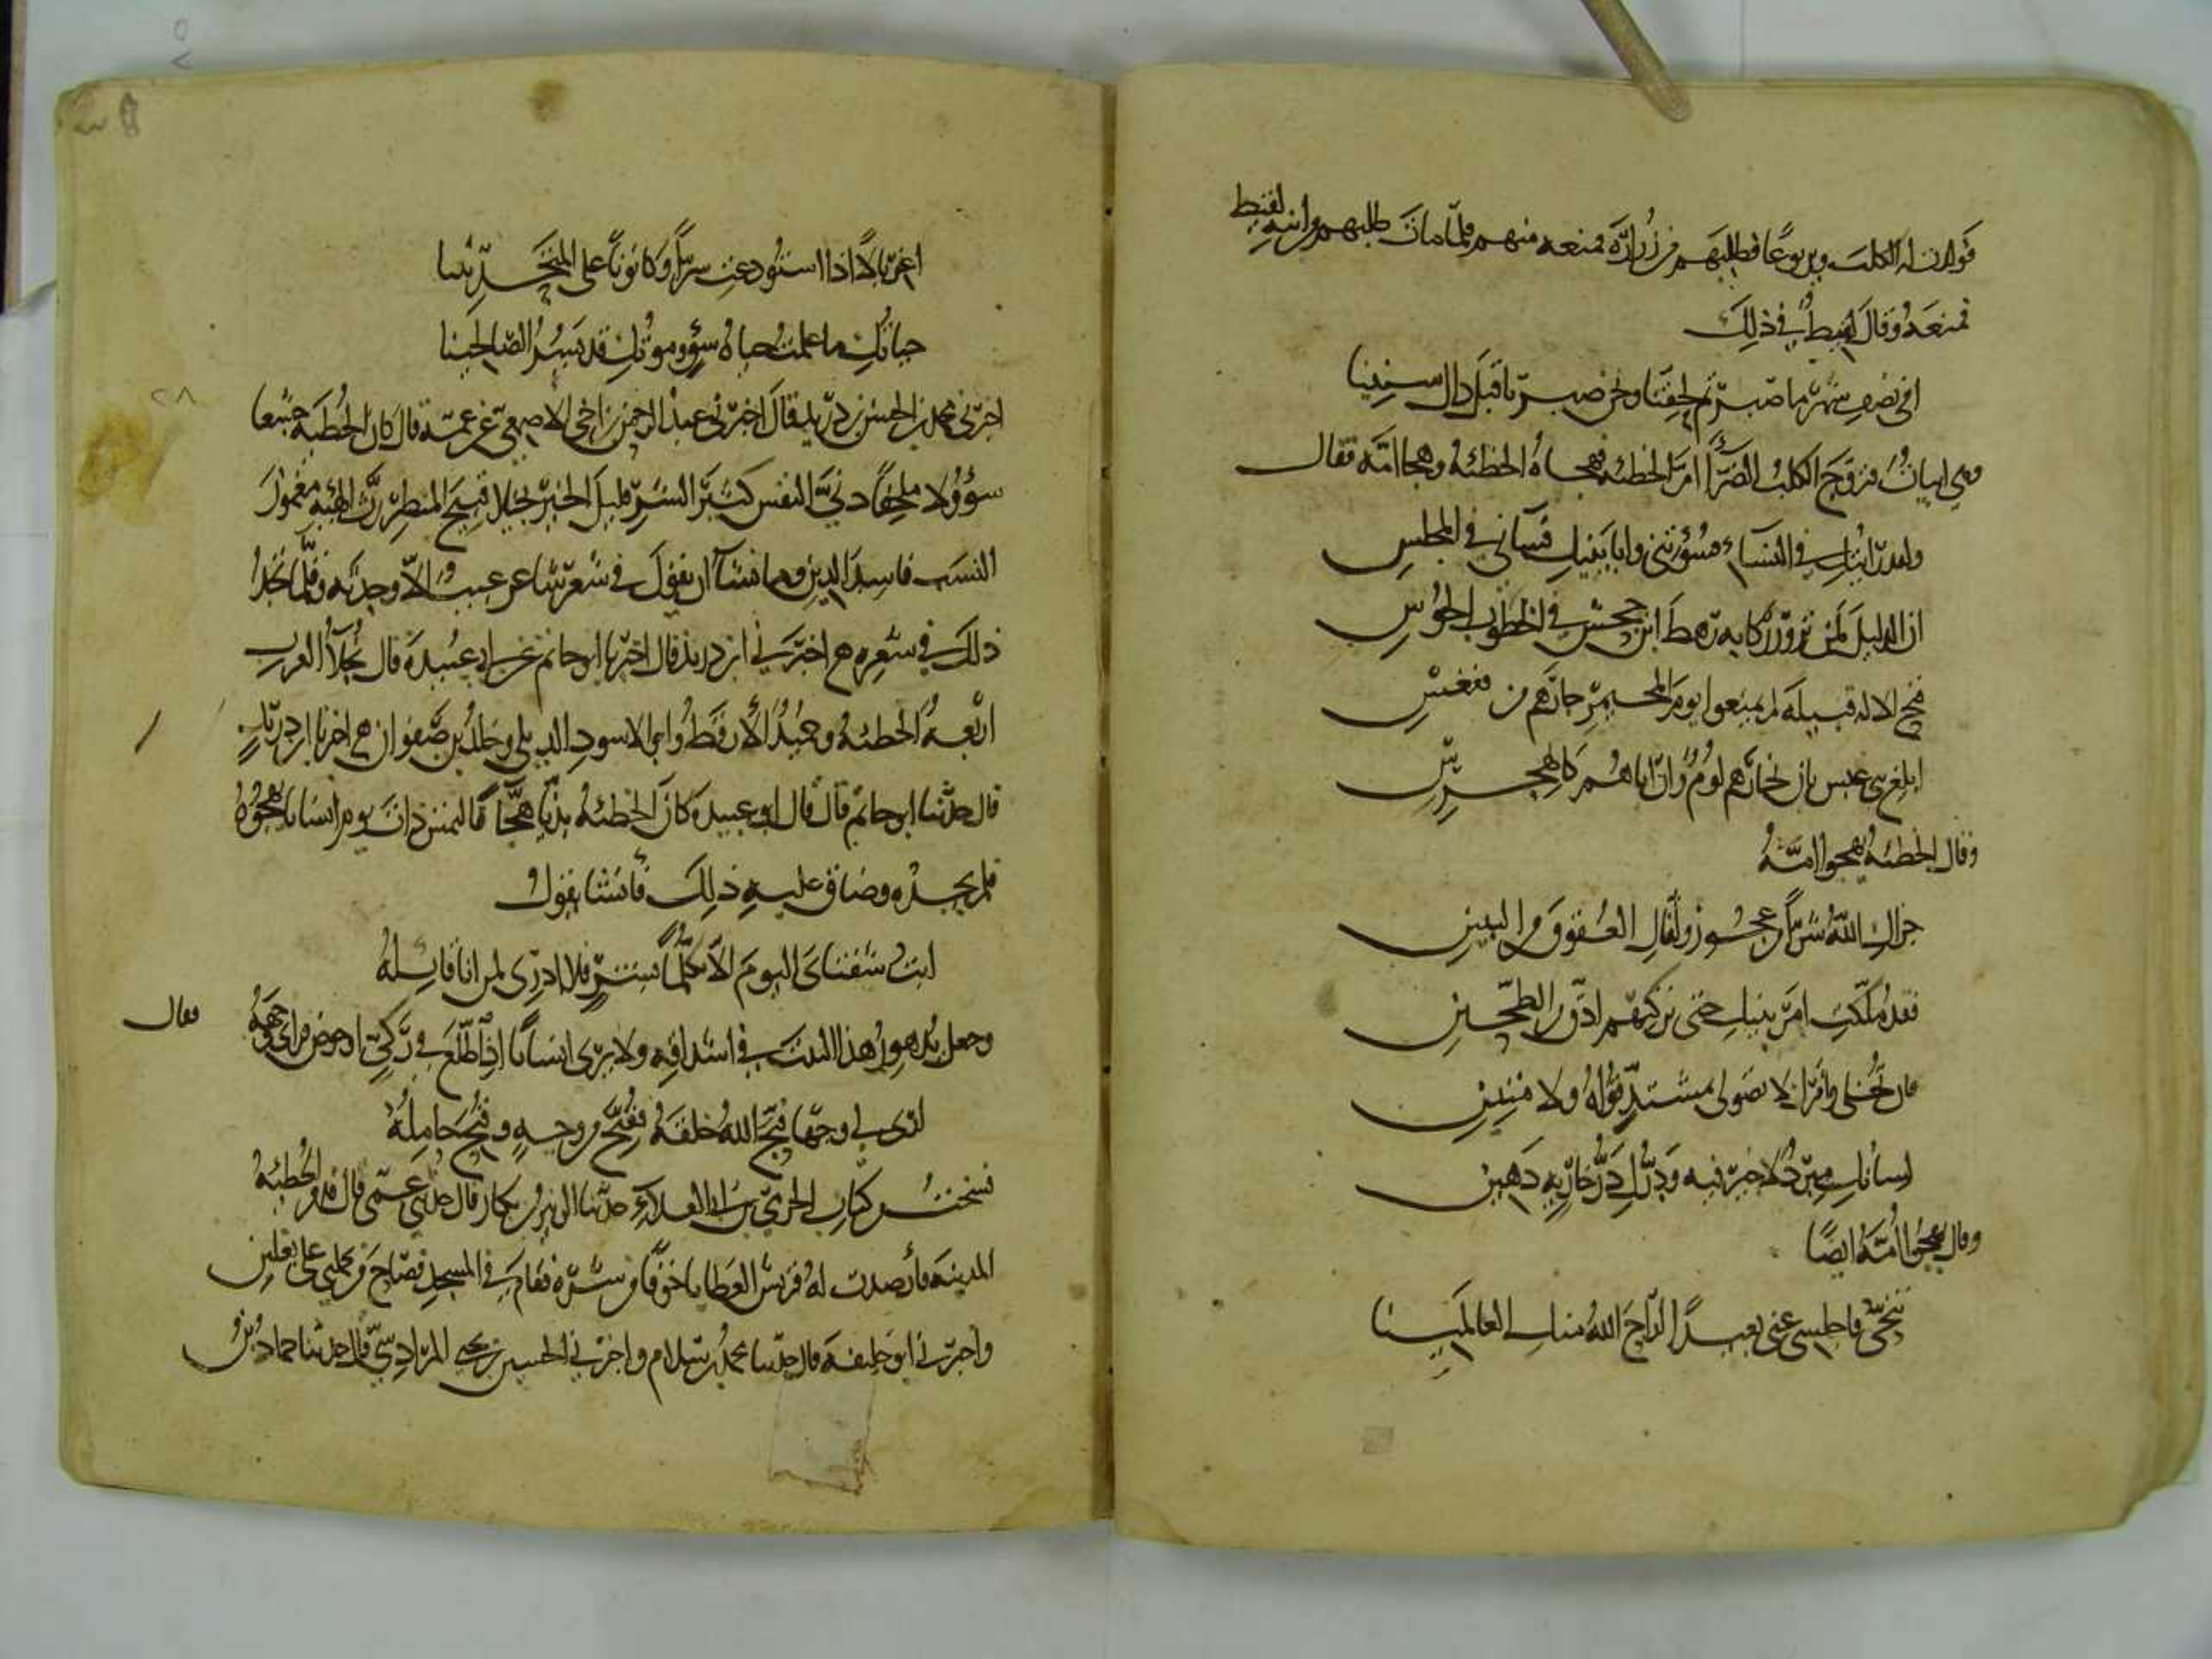 فولدت له الكلب ويربوعًا فطلبهم من زرارة فمنعه منهم فلما مات طلبهم من ابنه لقيط
فمنعه وقال لقيط في ذلك
افي نصف شهر ما صبرتم لحقنا ونحن صبرنا قبل ذاك سنينا
وهي ابيات فتزوج الكلب الضراء ام الحطيئة فهجاه الحطيئة وهجا امه فقال
ولقد رايتك في النساء فسؤتني وابا بنيك فساني في المجلس
ان الذليل لمن تزور ركابه رهط ابن جحش في الخطوب الحوس
قبح الاله قبيلة لم يمنعوا يوم المجيمر جارهم من فقعس
ابلغ بني عبس بان نجارهم لوم وان اباهم كالهجرس
وقال الحطيئة يهجوا امه
جزاك الله شرًا من عجوز ولقاك العقوق من البنين
فقد ملكت امر بنيك حتى تركتهم ادق من الطحين
فان تخلي وامرك لا تصولي بمشتد قواه ولا متين
لسانك مبرد لا خير فيه ودرك در جاذبة دهين
وقال يهجوا امه ايضًا
تنحي فاجلسي عني بعيدًا اراح الله منك العالمينا
اغربالًا اذا استودعت سرًا وكانونًا على المتحدثينا
حياتك ما علمت حياة سوء وموتك قد يسر الصالحينا
اخبرني محمد بن الحسن بن دريد قال اخبرني عبد الرحمن بن اخي الاصمعي عن عمه قال كان الحطيئة جشعا
سؤولا ملحفًا دني النفس كثير الشر قليل الخير بخيلا قبيح المنظر رث الهيئة مغموز
النسب فاسد الدين وما تشا ان تقول في شعر شاعر عيب الا وجدته وقلما تجد
ذلك في شعره اخبرني ابن دريد قال اخبرنا ابو حاتم عن ابي عبيدة قال بخلا العرب
اربعة الحطيئة وحميد الارقط وابو الاسود الديلي وخلد بن صفوان اخبرنا ابن دريد
قال حدثنا ابو حاتم قال قال ابو عبيدة كان الحطيئة بذيا هجا فالتمس ذات يوم انسانا يهجوه
فلم يجده وضاق عليه ذلك فانشا يقول
ابت شفتاي اليوم الا تكلما بشر فلا ادري لمن انا قايله
وجعل يدهور هذا البيت في اشداقه ولا يرى انسانا اذ اطلع في ركي او حوض فراى وجهه
فقال
ارى لي وجها قبح الله خلقه فقبح من وجه وقبح حامله
نسخت من كتاب الحرمي بن ابي العلاء حدثنا الزبير بن بكار قال حدثني عمي قال قدم الحطيئة
المدينة فارصدت له قريش العطايا خوفا من شره فقام في المسجد فصاح من يحملني على بغلين
واخبرني ابو خليفة قال حدثنا محمد بن سلام واخبرني الحسين بن يحيى المرادسي قال حدثنا حماد بن
٢٨